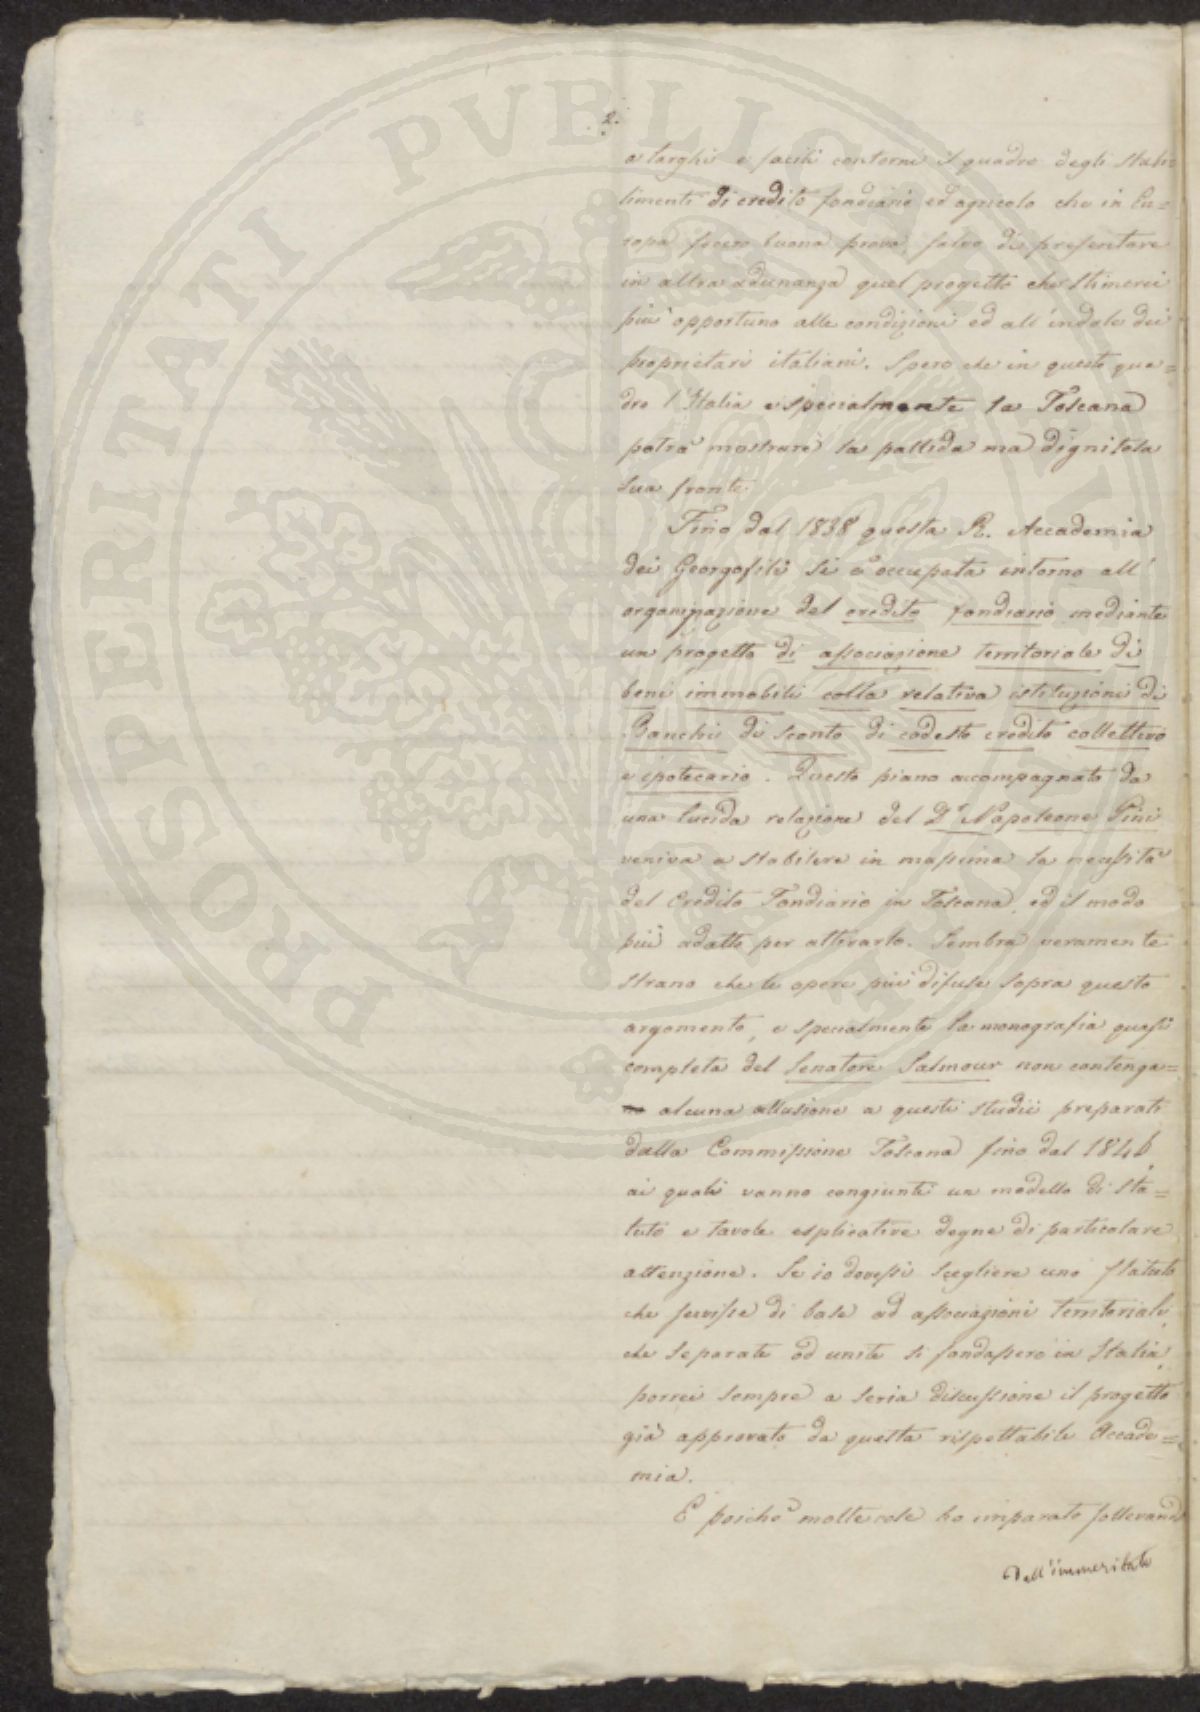 2.
a larghi e facili contorni il quadro degli stabi=
limenti di credito fondiario ed agricolo che in Eu=
ropa fecero buona prova, salvo di presentare
in altra adunanza quel progetto che stimerei
più opportuno alle condizioni ed all'indole dei
proprietari italiani. Spero che in questo qua=
dro l'Italia e specialmente la Toscana
potrà mostrare la pallida ma dignitosa
sua fronte.
Fino dal 1838 questa R. Accademia
dei Georgofili si è occupata intorno all'
organizzazione del credito fondiario mediante
un progetto di associazione territoriale di
beni immobili colla relativa istituzione di
Banchi di sconto di codesto credito collettivo
e ipotecario. Questo piano accompagnato da
una lucida relazione del Dr Napoleone Pini
veniva a stabilire in massima la necessità
del Credito Fondiario in Toscana, ed il modo
più adatto per attivarlo. Sembra veramente
strano che le opere più difuse sopra questo
argomento, e specialmente la monografia quasi
completa del Senatore Salmour non contenga=
no alcuna allusione a questi studii preparati
dalla Commissione Toscana fino dal 1846,
ai quali vanno congiunti un modello di sta=
tuto e tavole esplicative degne di particolare
attenzione. Se io dovessi scegliere uno statuto
che servisse di base ad associazioni territoriali,
che separate od unite si fondassero in Italia,
porrei sempre a seria discussione il progetto
già approvato da questa rispettabile Accade=
mia.
E poichè molte cose ho imparato sollevand
dall'immeritato
PROSPERITATI PVBLICAE